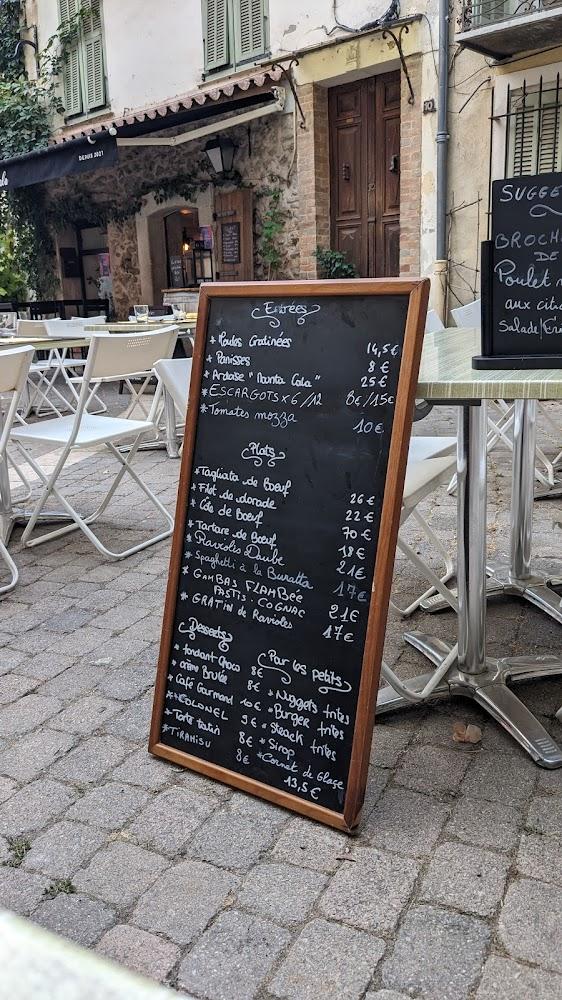 DEPUIS 2021
Entrées
* Moules Gratinées 14,5€
* Panisses 8€
* Ardoise "Nanta Cola" 25€
* ESCARGOTS x 6/12 8€/15€
* Tomates mozza 10€
Plats
* Tagliata de Boeuf 26€
* Filet de dorade 22€
* Côte de Boeuf 70€
* Tartare de Boeuf 18€
* Ravioles Daube 21€
* Spaghetti à la Buratta 17€
* GAMBAS FLAMBÉE 21€
PASTIS. COGNAC
* GRATIN de Ravioles 17€
Desserts
* fondant choco 8€
* crème Brulée 8€
* Café Gourmand 10€
* COLONEL 9€
* Tarte tatin 8€
* TIRAMISU 8€
Par les petits
* Nuggets frites
* Burger frites
* Steack frites
* Sirop
* Cornet de Glace
13,5€
SUGGE
BROCH
DE
Poulet
aux citr
Salade/